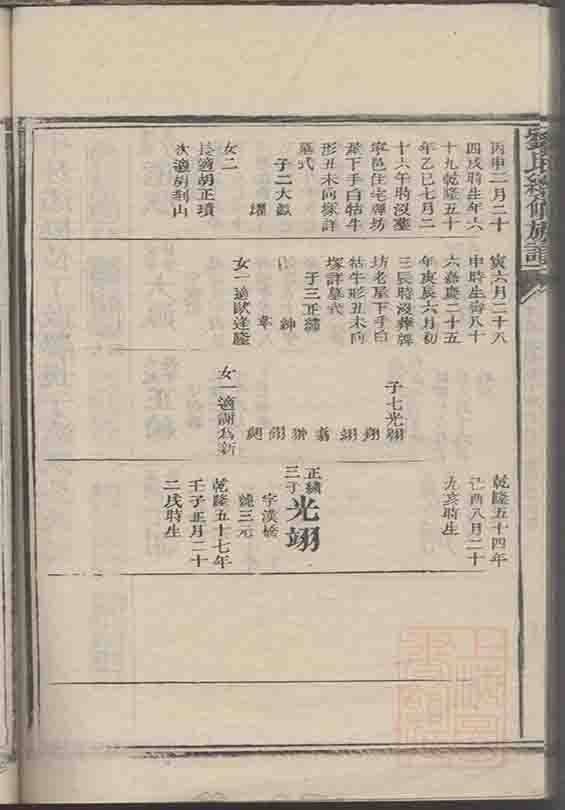 劉氏續修族譜
丙申二月二十
四戌時生年六
十九乾隆五十
年乙巳七月二
十六午時沒葬
寧邑住宅禪坊
老屋下手白牯牛
形丑未向塚詳
墓式
子二大猷
耀
女二
長適胡正瓚
次適胡
山
寅六月二十八
申時生壽八十
六嘉慶二十五
年庚辰六月初
三辰時沒葬禪
坊老屋下手白
牯牛形丑未向
塚詳墓式
子三正繡
紳
韋
女一適歐達隆
子七光翊
翔
翊
翥
翀
翎
翹
女一適謝為新
乾隆五十四年
己酉八月二十
九亥時生
正繡
三子
光翊
字漢嬌
號三元
乾隆五十七年
壬子正月二十
二戌時生